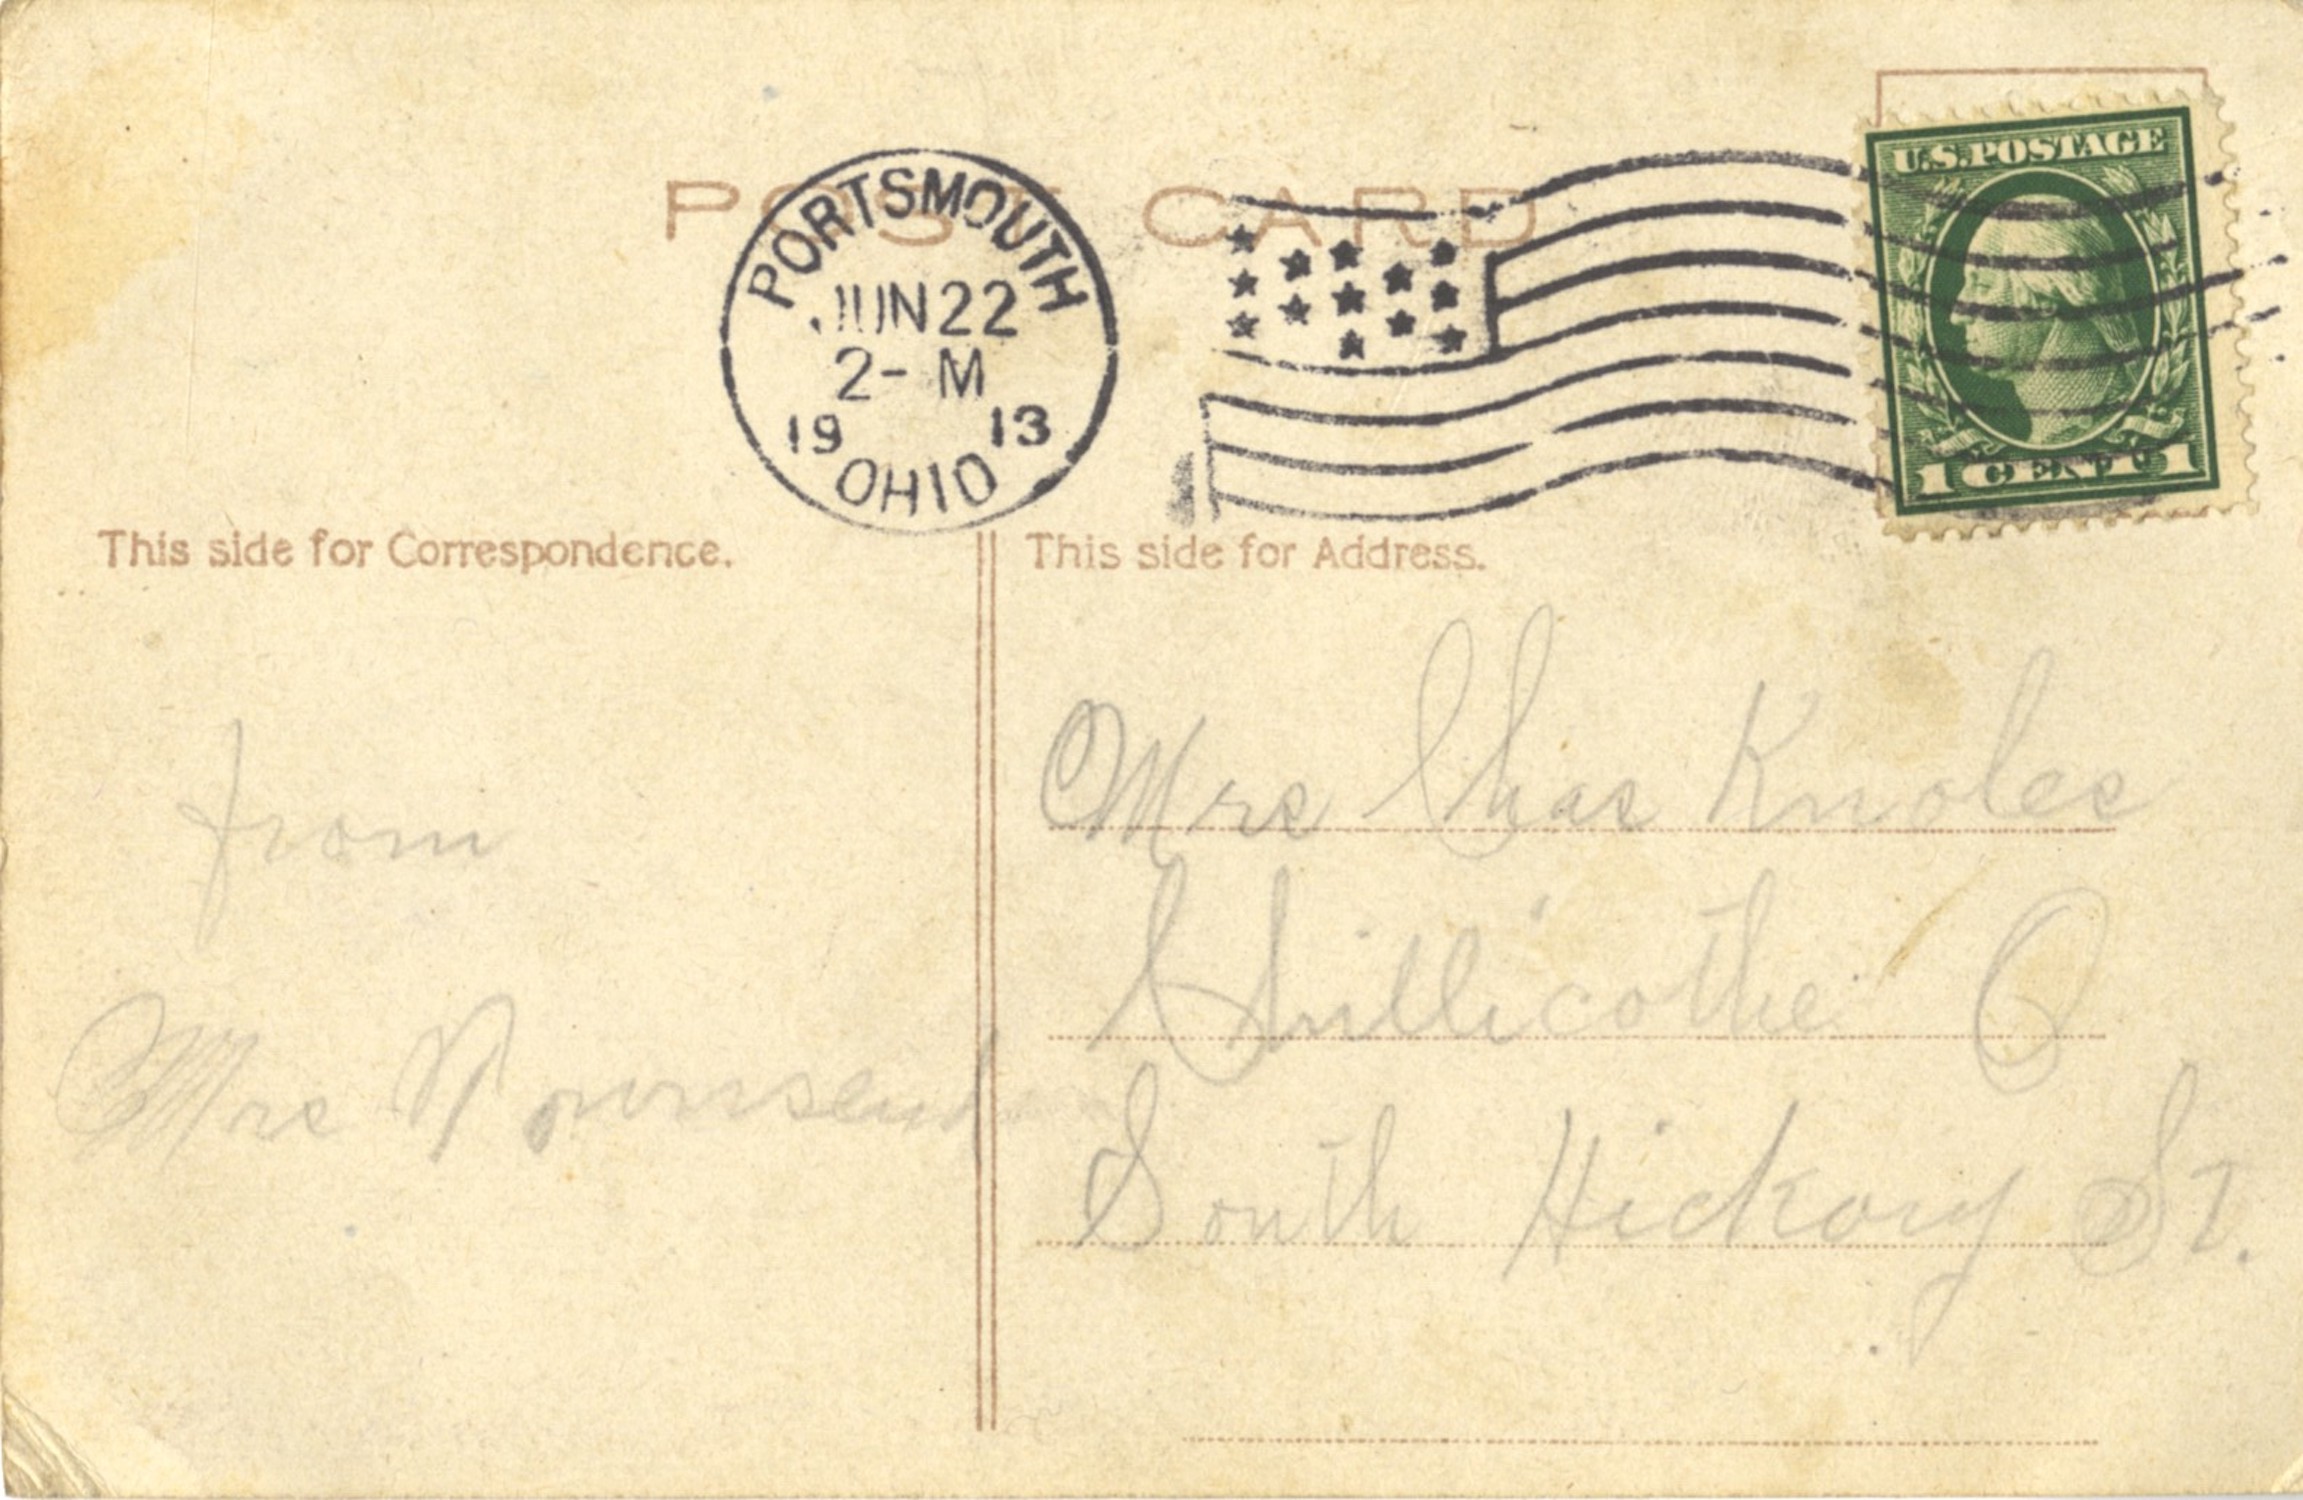 POST CARD
PORTSMOUTH
JUN 22
2- M
19 13
OHIO
U.S. POSTAGE
1 CENT 1
This side for Correspondence.
This side for Address.
from
Mrs Townsend
Mrs Chas Knoles
Chillicothe O
South Hickory St.